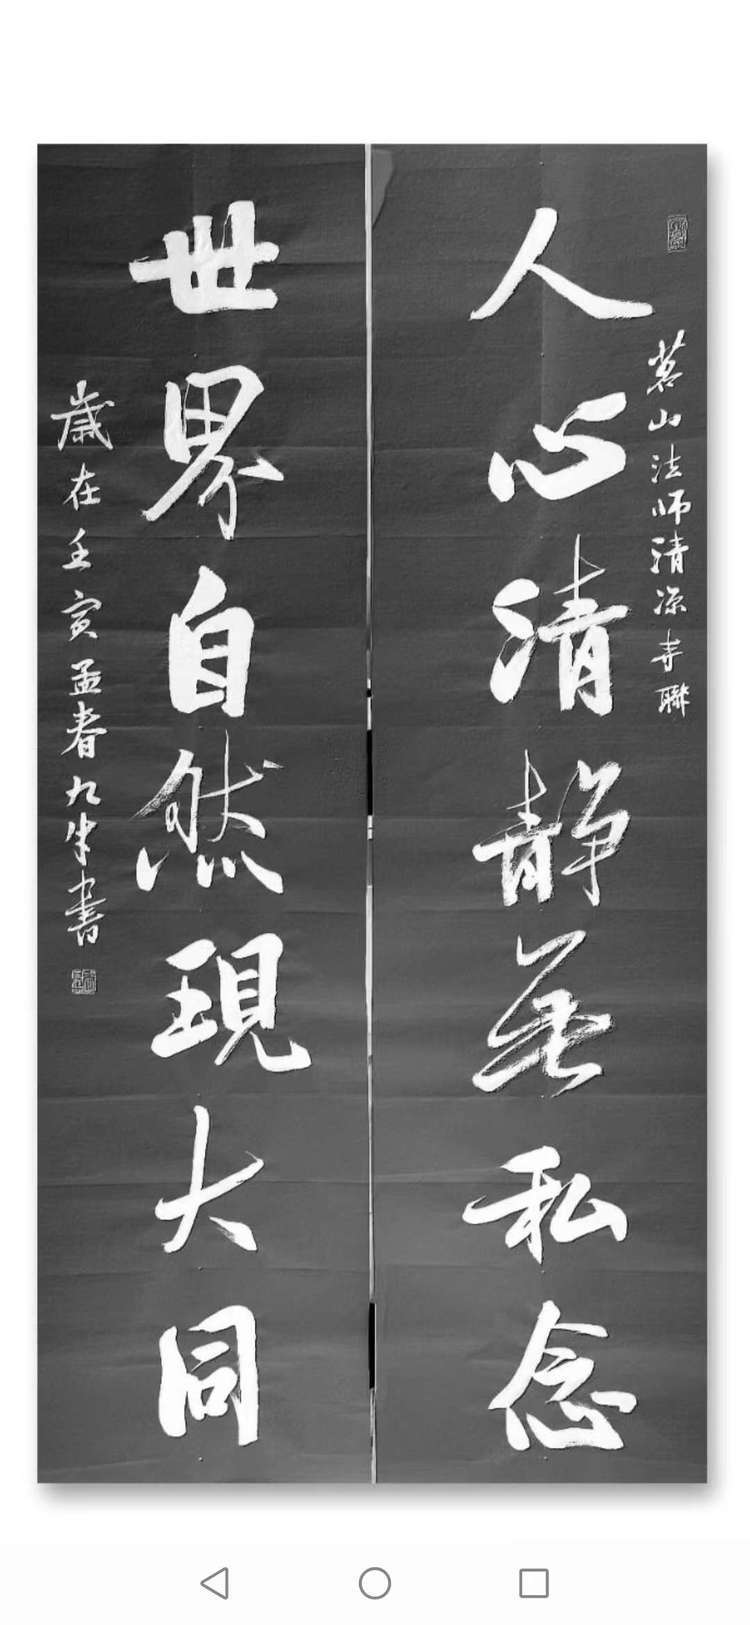 人心清静無私念
茗山法师清凉寺聯
世界自然現大同
歲在壬寅孟春九牛書